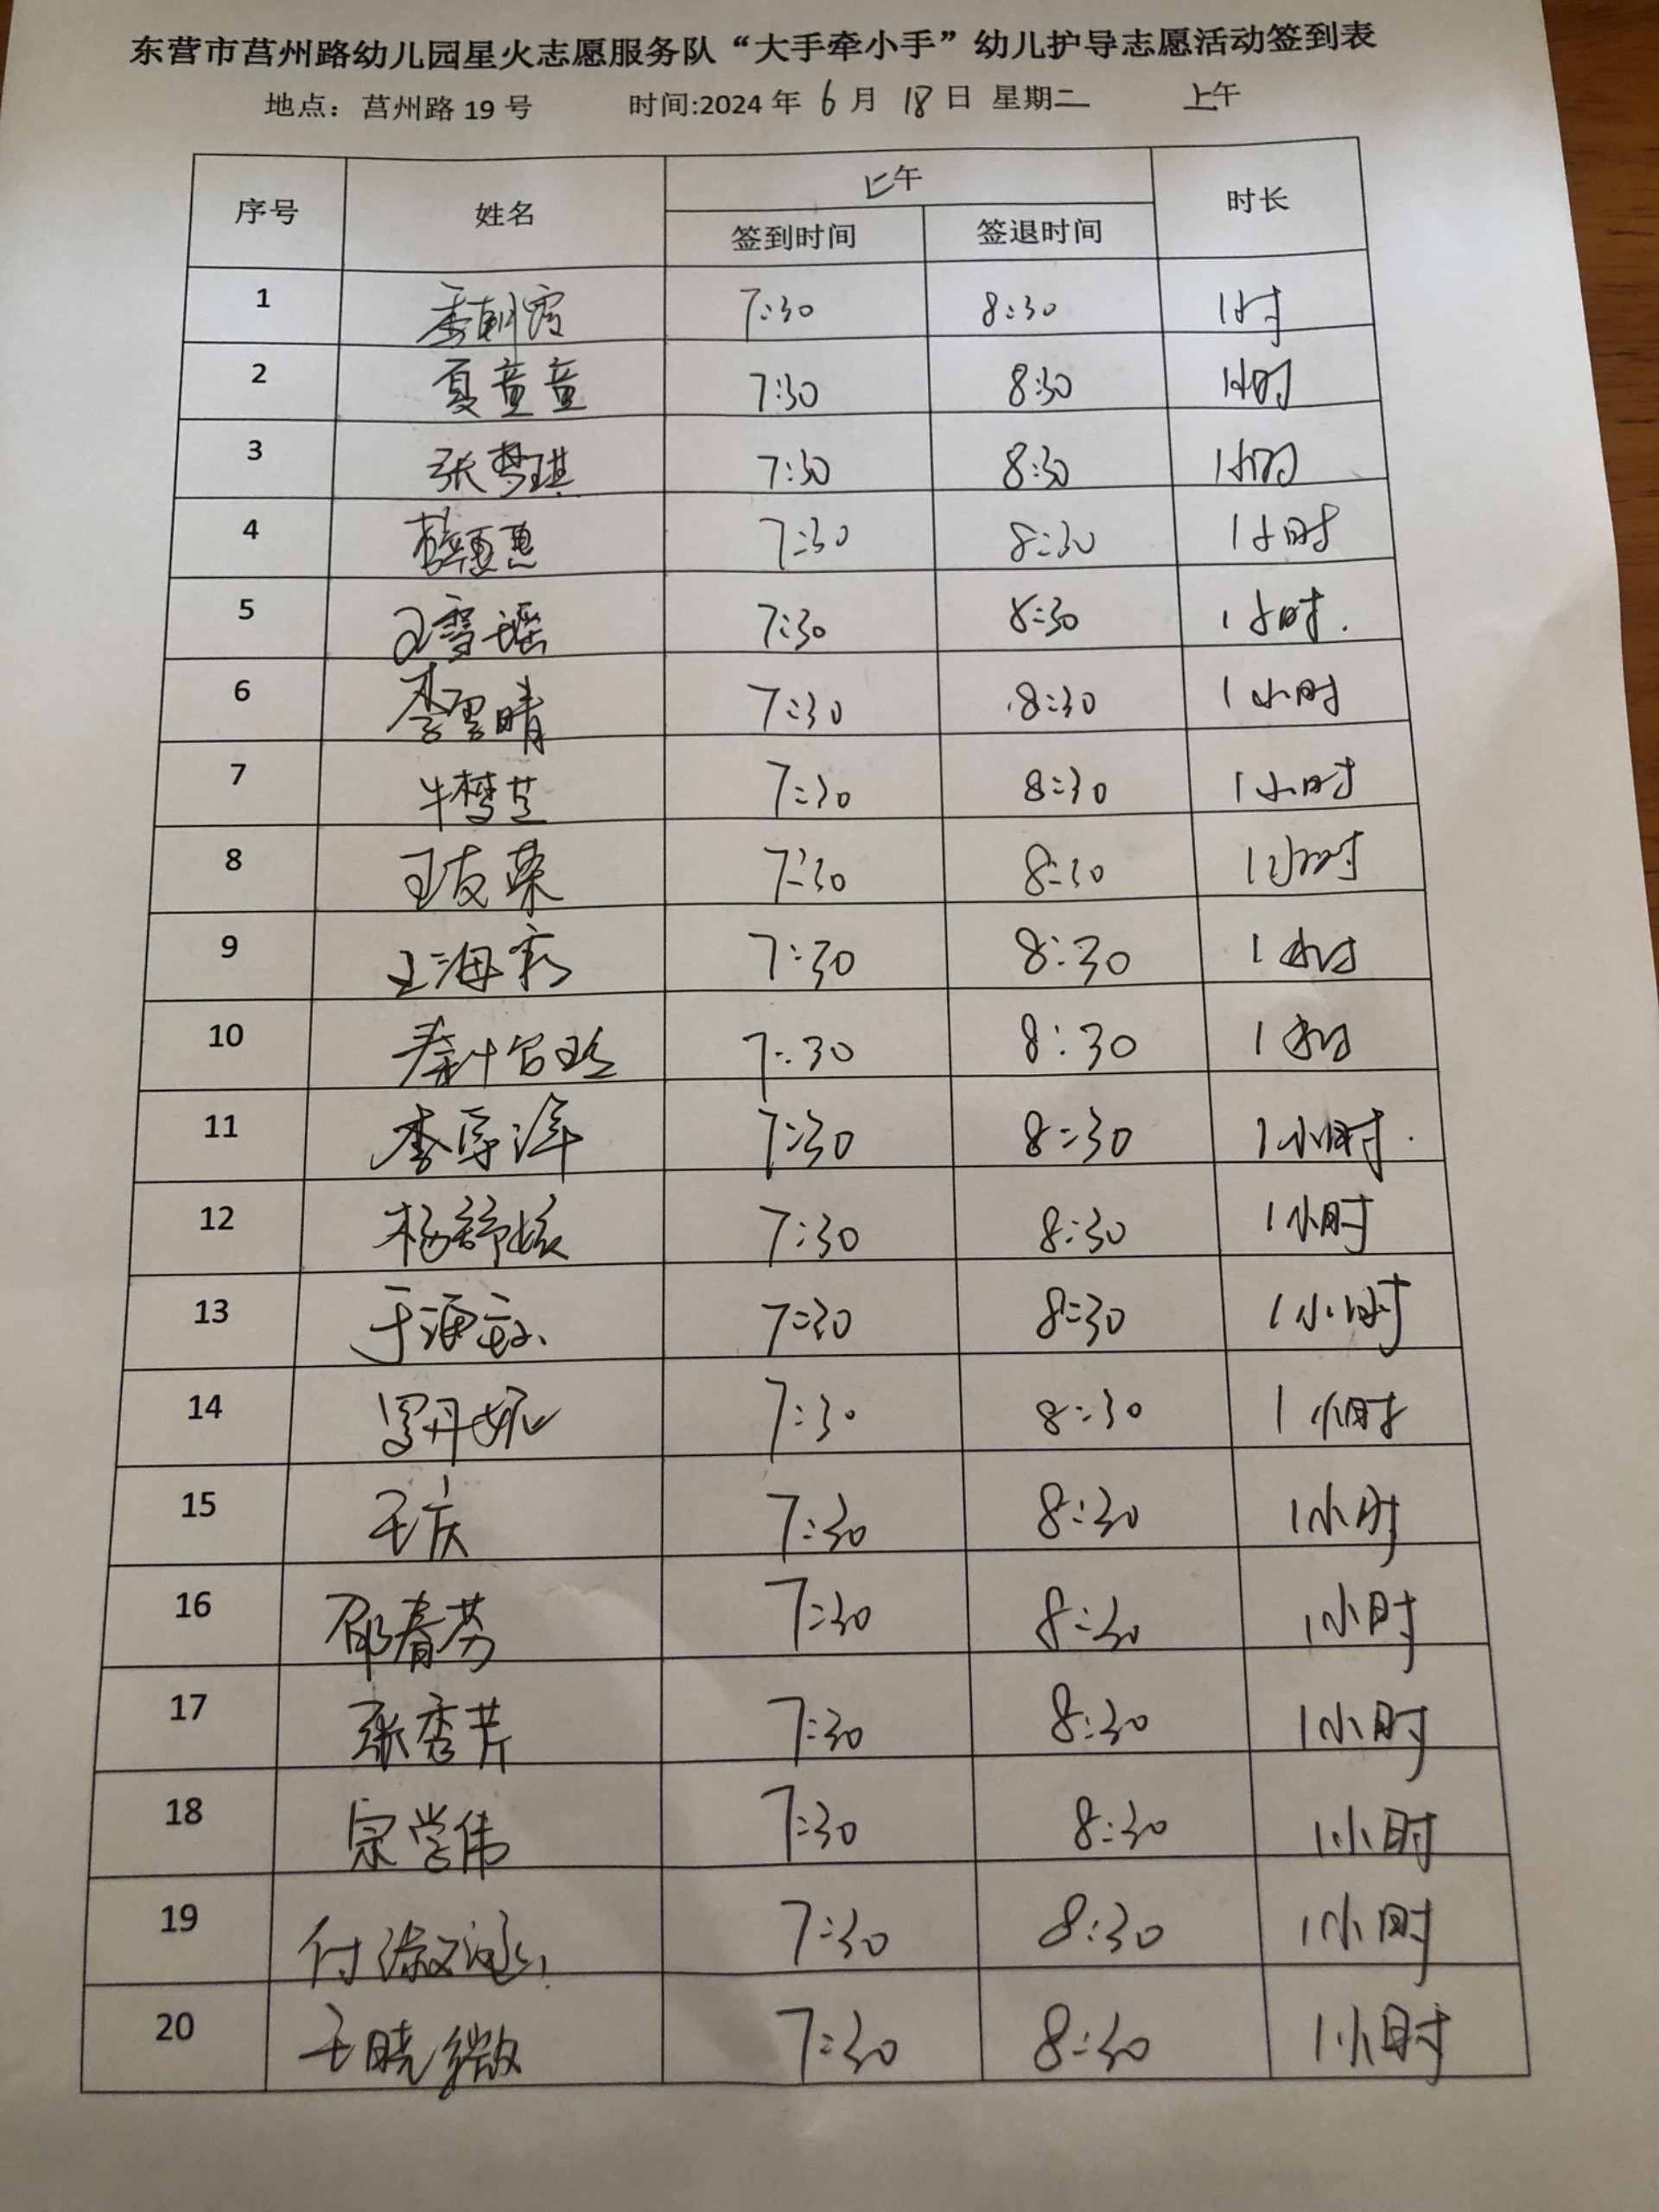 东营市莒州路幼儿园星火志愿服务队“大手牵小手”幼儿护导志愿活动签到表
地点：莒州路19号 时间:2024年6月18日 星期二 上午
序号 姓名 上午 时长
签到时间 签退时间
1 季朝霞 7:30 8:30 1时
2 夏童童 7:30 8:30 1小时
3 张梦琪 7:30 8:30 1小时
4 7:30 8:30 1小时
5 王雪瑶 7:30 8:30 1小时.
6 李雲晴 7:30 8:30 1小时
7 牛梦芝 7:30 8:30 1小时
8 王友荣 7:30 8:30 1小时
9 王海彩 7:30 8:30 1小时
10 7:30 8:30 1小时
11 李 7:30 8:30 1小时.
12 杨舒 7:30 8:30 1小时
13 于海 7:30 8:30 1小时
14 罗丹妮 7:30 8:30 1小时
15 王庆 7:30 8:30 1小时
16 邵春芳 7:30 8:30 1小时
17 张秀芹 7:30 8:30 1小时
18 宗学伟 7:30 8:30 1小时
19 付淑涵 7:30 8:30 1小时
20 王晓微 7:30 8:30 1小时